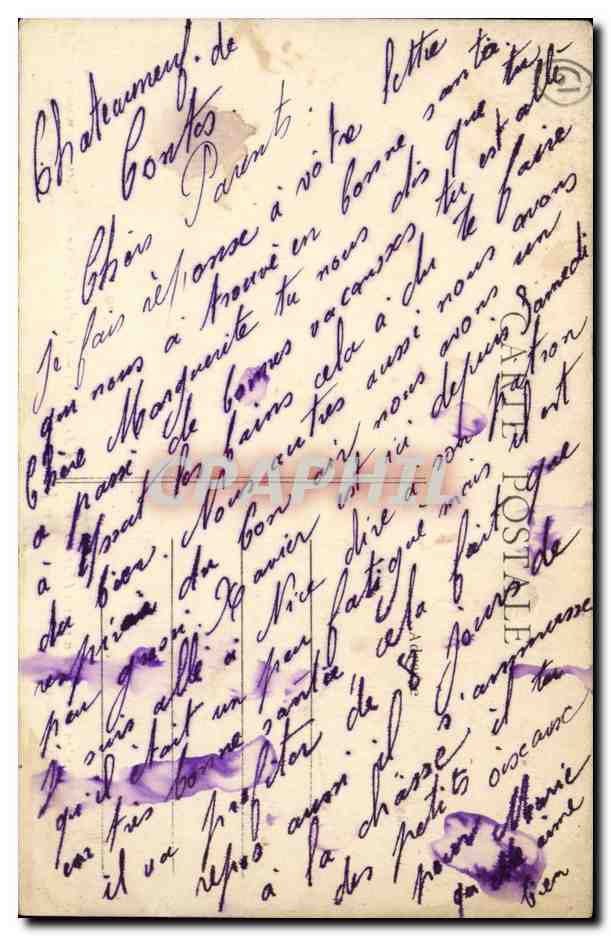 Chateauneuf. de
Contes
Chers Parents.
Je fais réponse à vôtre lettre
qui nous à trouvé en bonne santé.
Chère Marguerite tu nous dis que tu
a passé de bonnes vacances tu est allé
à Ussat les bains cela à du te faire
du bien. Nous autres aussi nous avons
respiré du bon air nous avons un
peu grossi. Xavier est ici depuis samedi
je suis allé à Nice dire a son patron
qu'il était un peu fatigué mais il est
en très bonne santé cela fait que
il va profiter de 8 jours de
repos aussi il s'ammusse
à la châsse il tu
des petits oiseaux
pour Marie
qui aime
bien
CARTE POSTALE
Adresse
G1
CPAPHIL